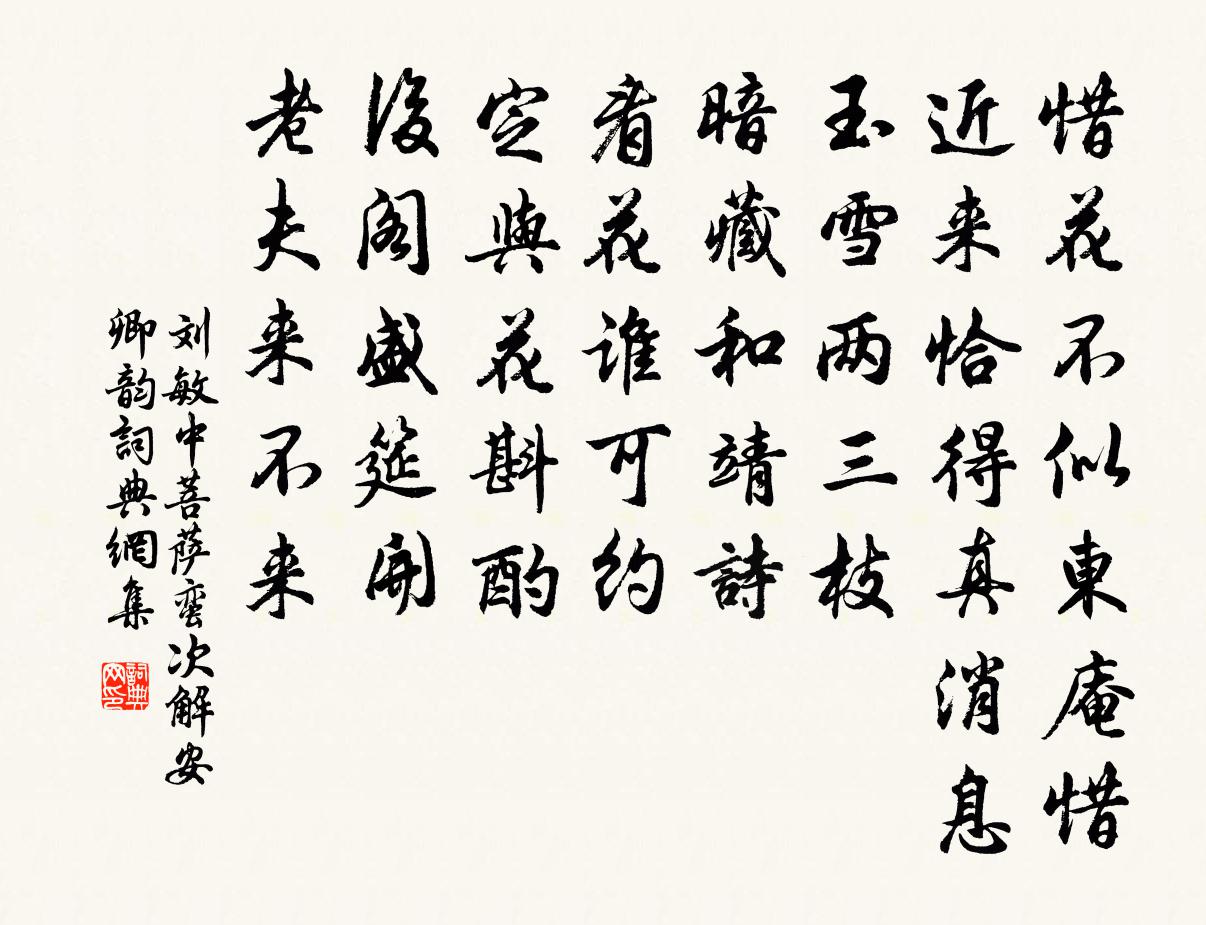 惜花不似東庵惜
近来恰得真消息
玉雪两三枝
暗藏和靖詩
看花誰可约
定與花斟酌
後阁盛筵開
老夫来不来
刘敏中菩萨蛮次解安
卿韵詞典網集
詞典网印